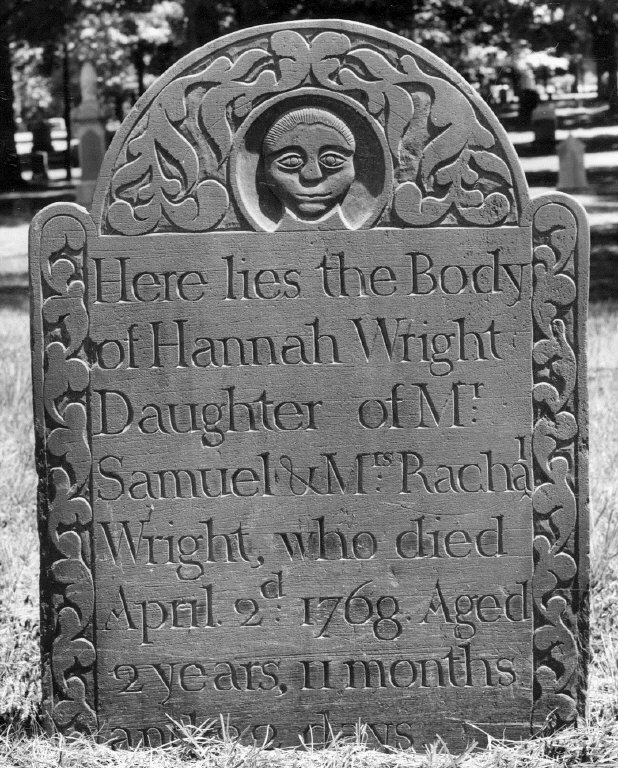 Here lies the Body
of Hannah Wright
Daughter of Mr.
Samuel & Mrs. Rachal
Wright, who died
April. 2d. 1768. Aged
2 years, 11 months
and days